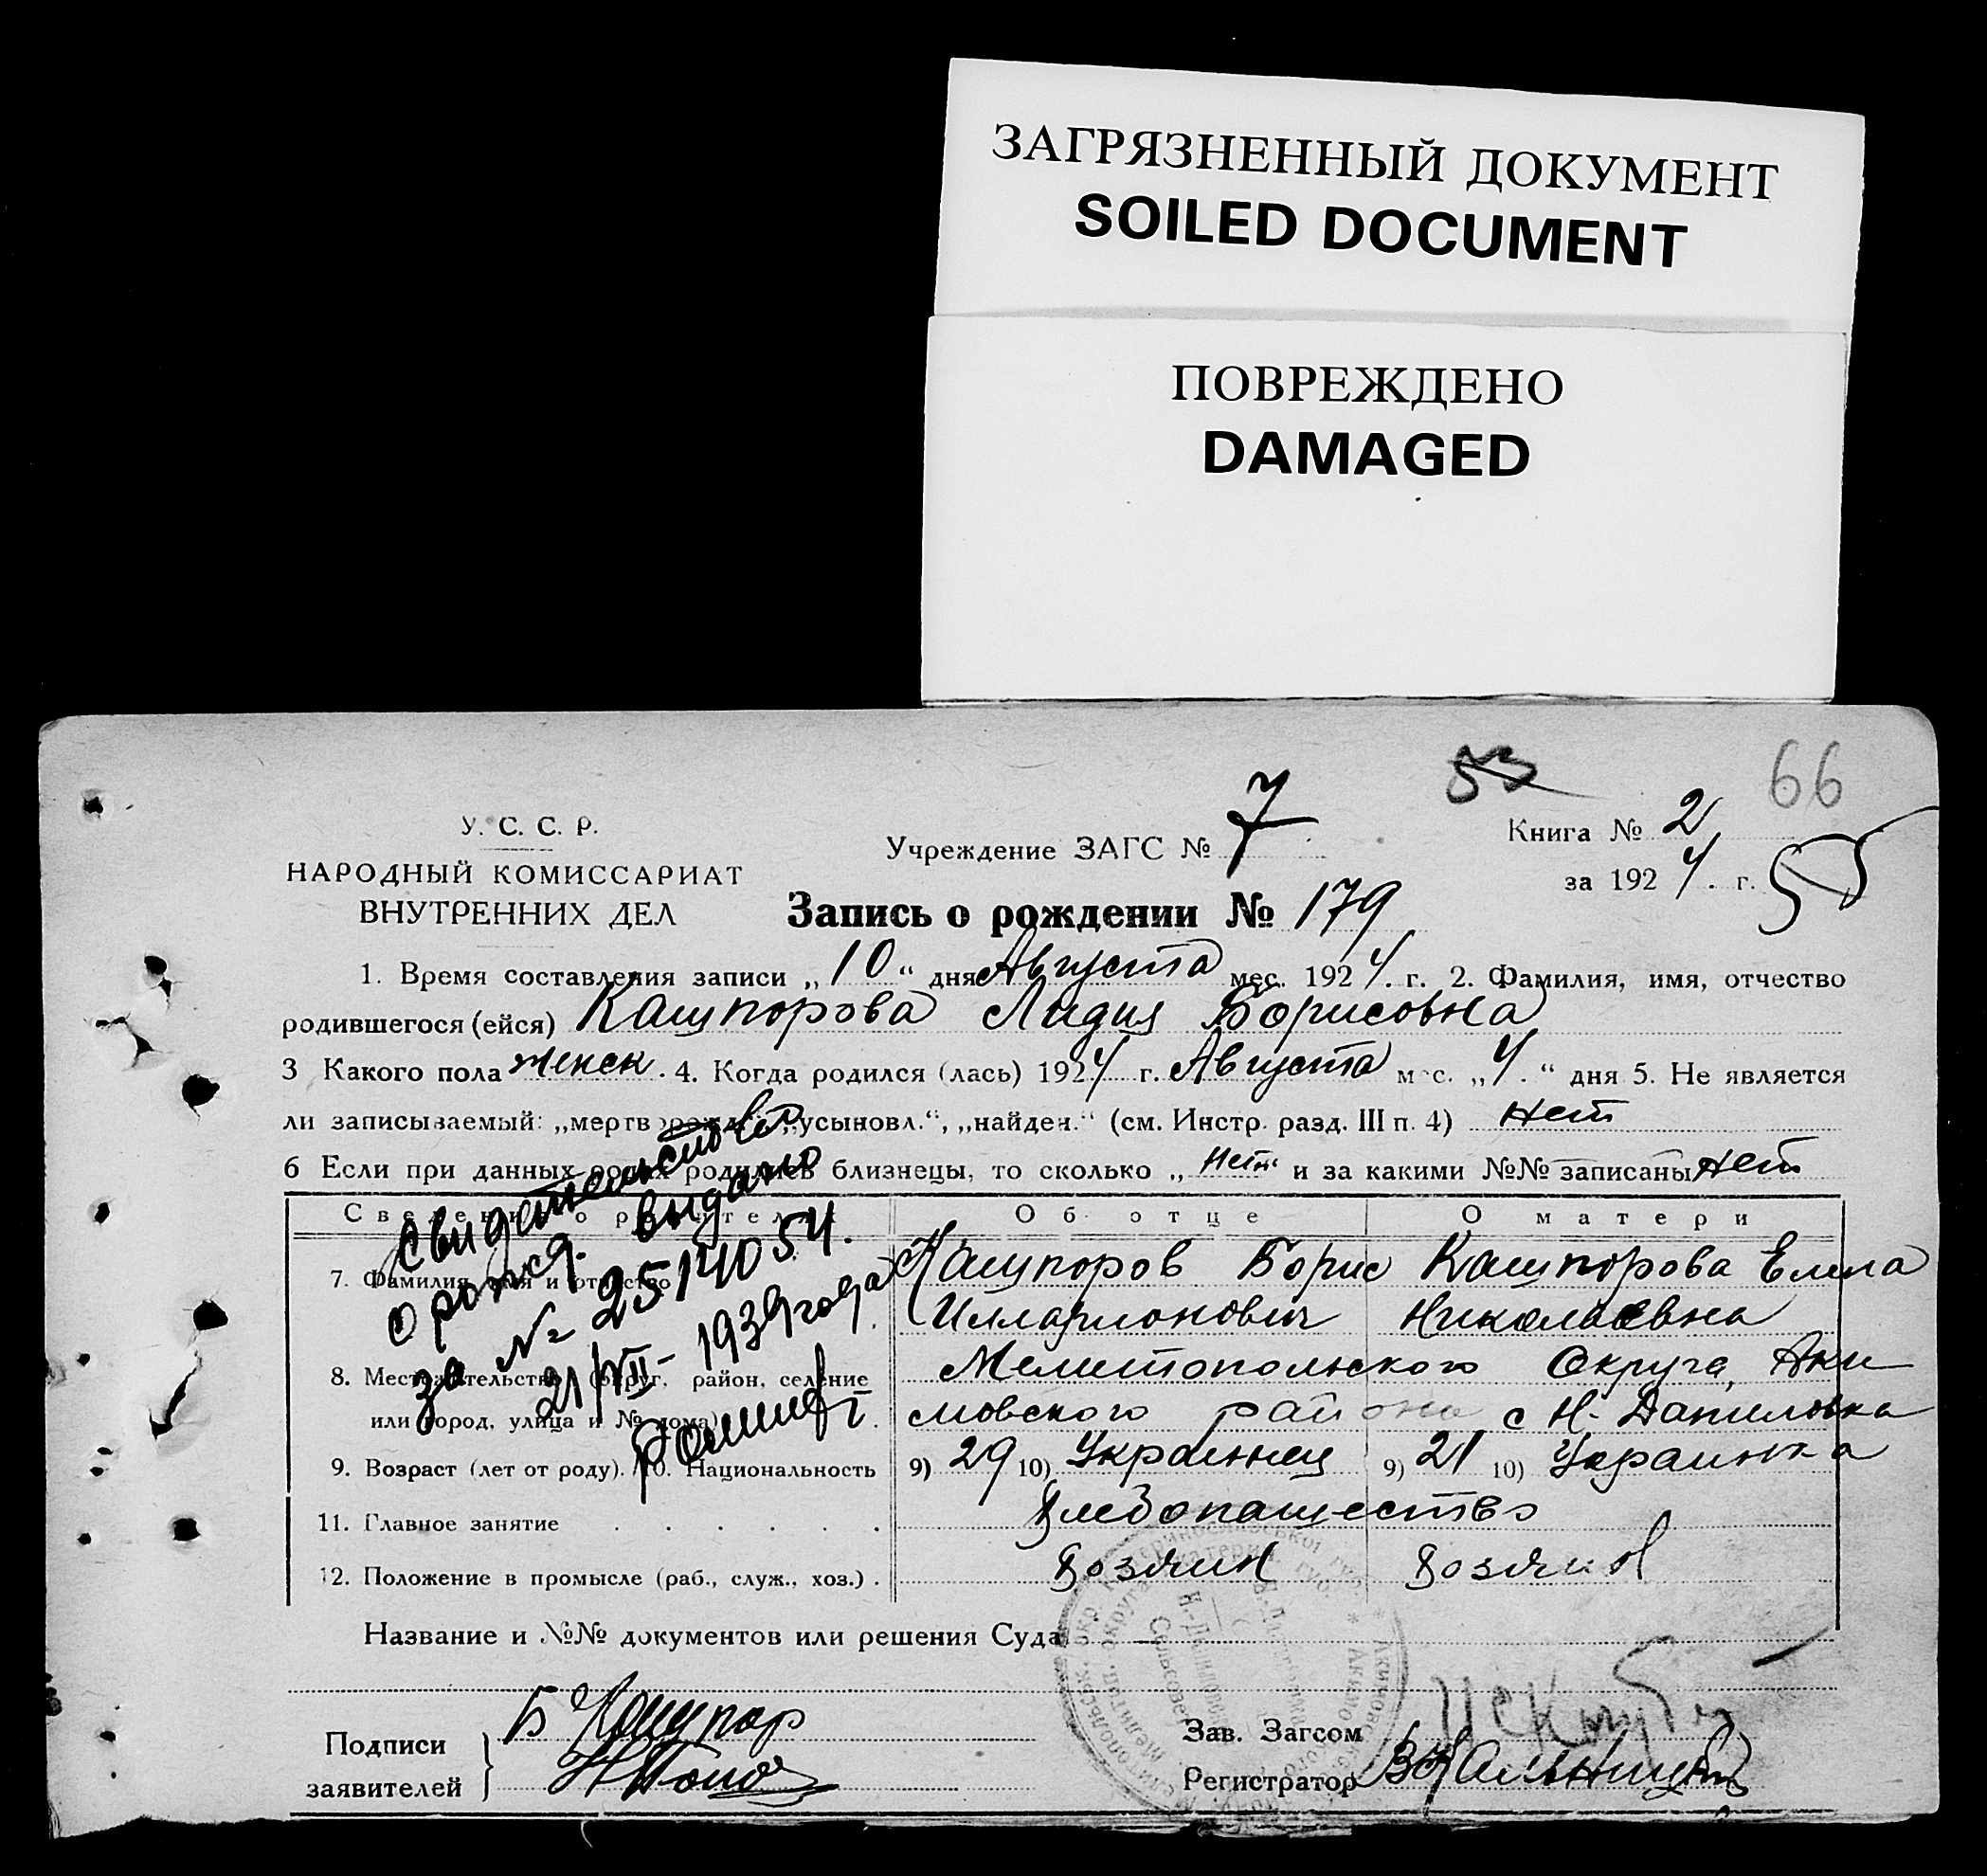 ЗАГРЯЗНЕННЫЙ ДОКУМЕНТ
SOILED DOCUMENT
ПОВРЕЖДЕНО
DAMAGED
53
66
У. С. С. Р.
НАРОДНЫЙ КОМИССАРИАТ
ВНУТРЕННИХ ДЕЛ
Учреждение ЗАГС № 7
Книга № 2
за 1924. г.
55
Запись о рождении № 179
1. Время составления записи „10“ дня Августа мес. 1924. г. 2. Фамилия, имя, отчество
родившегося (ейся) Кашпорова Лидия Борисовна
3 Какого пола женск. 4. Когда родился (лась) 1924 г. Августа мес. „4.“ дня 5. Не является
ли записываемый: „мертворожд.“, „усыновл.“, „найден.“ (см. Инстр. разд. III п. 4) Нет
6 Если при данных родах родились близнецы, то сколько „Нет“ и за какими №№ записаны Нет
Сведения о родителях Об отце О матери
7. Фамилия, имя и отчество Кашпоров Борис Кашпорова Елена
Илларионович Николаевна
8. Местожительство (округ, район, селение Мелитопольского Округа, Аки
или город, улица и № дома) мовского района с Н-Даниловка
9. Возраст (лет от роду). 10. Национальность 9) 29 10) Украинец 9) 21 10) Украинка
11. Главное занятие Хлебопашество
12. Положение в промысле (раб., служ., хоз.) Хозяин Хозяин
Свидетельство
о рожд. выдано
за № 2514054.
21/VII- 1939 года
Название и №№ документов или решения Суда
Подписи
заявителей
Б Кашпор
Зав. Загсом
Регистратор